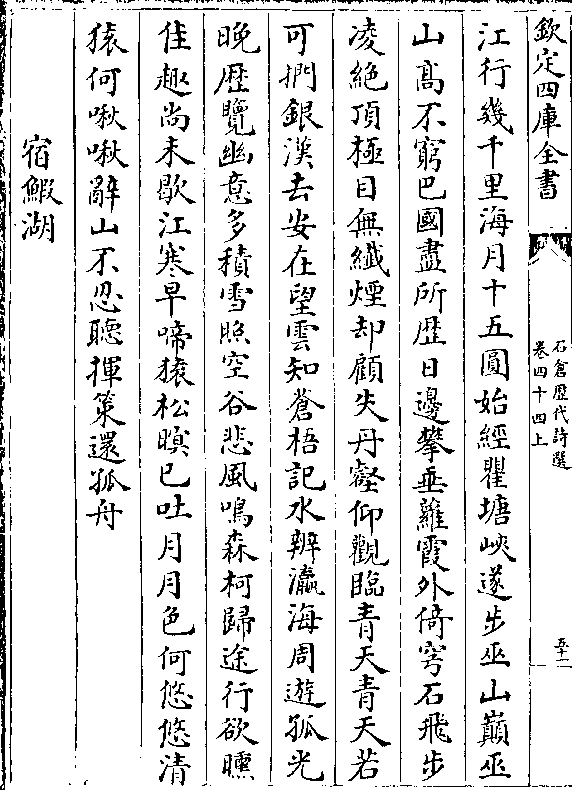 欽定四庫全書
石倉歴代詩選
卷四十四上
五十二
江行幾千里海月十五圓始經瞿塘峽遂步巫山巔巫
山髙不窮巴國盡所歴日邊攀垂蘿霞外倚穹石飛步
凌絶頂極目無纎煙却顧失丹壑仰觀臨青天青天若
可捫銀漢去安在望雲知蒼梧記水辨瀛海周遊孤光
晚歴覽幽意多積雪照空谷悲風鳴森柯歸途行欲曛
佳趣尚未歇江寒早啼猿松暝已吐月月色何悠悠清
猿何啾啾辭山不忍聽揮策還孤舟
宿鰕湖